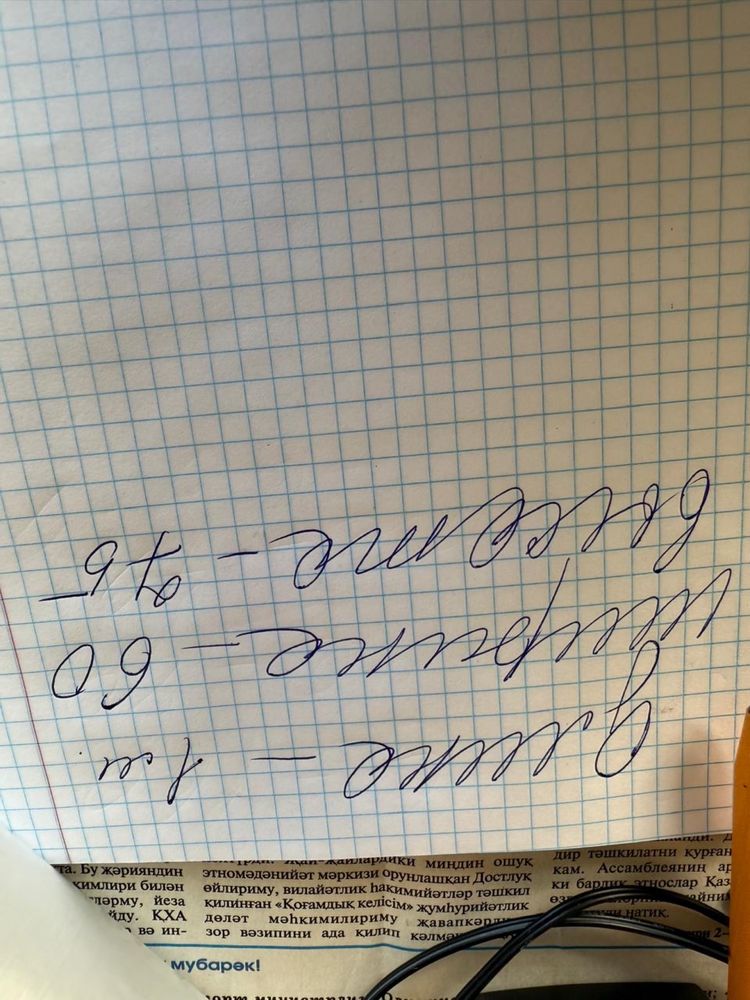 длина - 1 м.
ширина - 60
высота - 75
та. Бу җәрияндин
кимлири билән
йду. ҚХА
вә ин-
җай-җайлардики миңдин ошуқ
этномәдәнийәт мәркизи орунлашқан Достлуқ
өйлириму, вилайәтлик һакимийәтләр тәшкил
қилинған «Қоғамдық келісім» җумһурийәтлик
дөләт мәһкимилириму җавапкәрд
зор вәзипини ада қилип кәлмә
дир тәшкилатни қурған
кам. Ассамблеяниң ар
ки барлиқ этнослар Қаз
мубарәк!